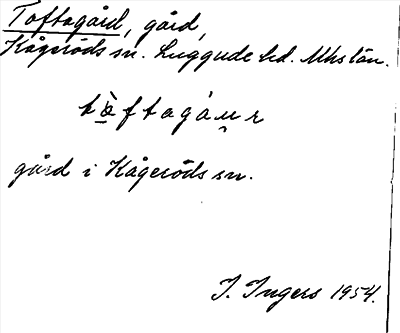 Toftagård, gård,
Kågeröds sn. Luggude hd. Mhs län.
tò̤ftagáu̯r
gård i Kågeröds sn.
I. Ingers 1954.